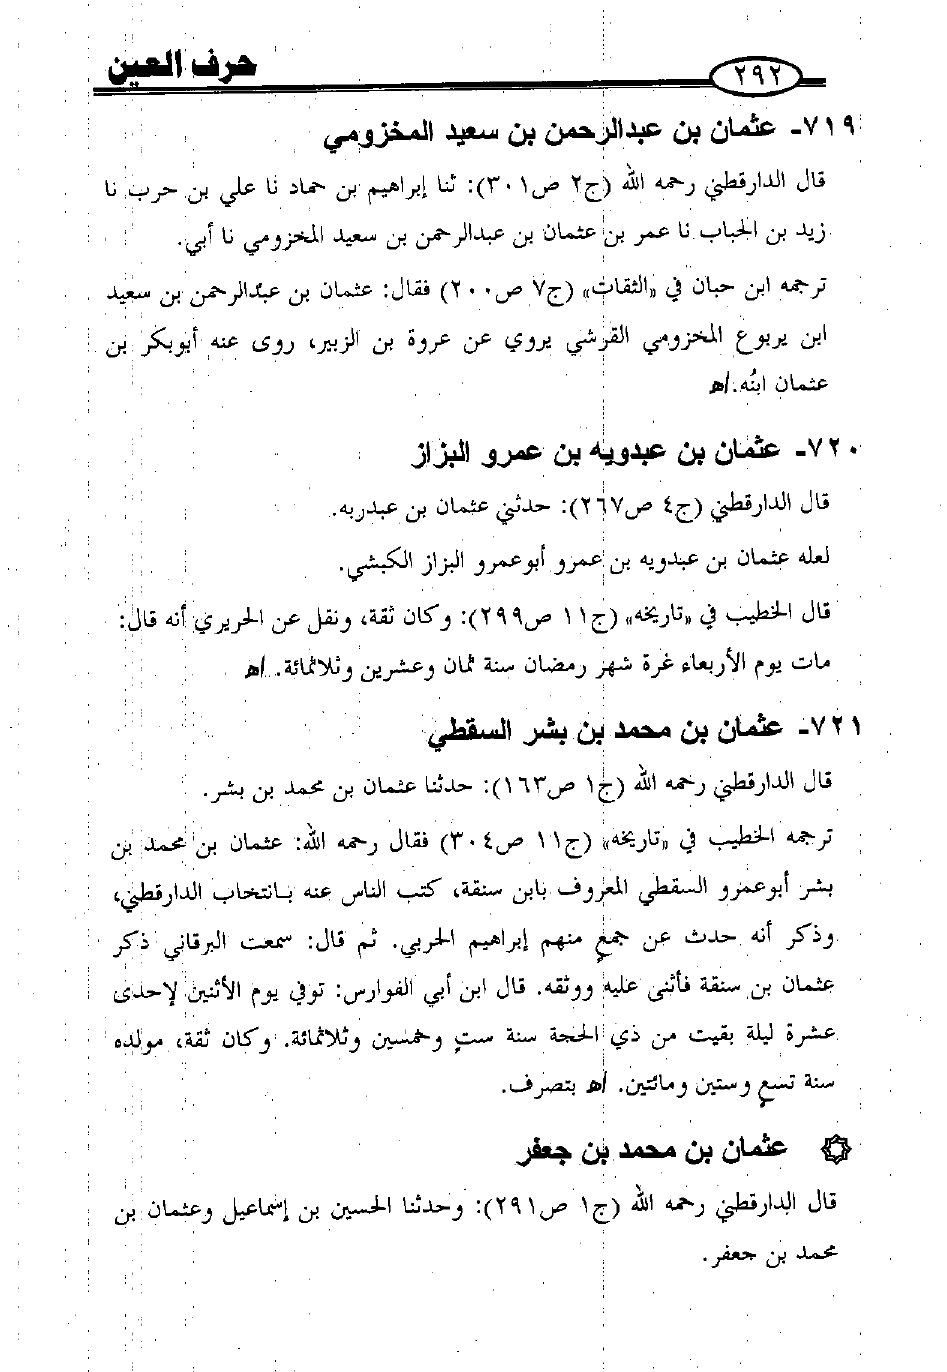 ٢٩٢ حرف العين
٧١٩- عثمان بن عبدالرحمن بن سعيد المخزومي
قال الدارقطني رحمه الله (ج٢ ص٣٠١): ثنا إبراهيم بن حماد نا علي بن حرب نا
زيد بن الحباب نا عمر بن عثمان بن عبدالرحمن بن سعيد المخزومي نا أبي.
ترجمه ابن حبان في «الثقات» (ج٧ ص٢٠٠) فقال: عثمان بن عبدالرحمن بن سعيد
ابن يربوع المخزومي القرشي يروي عن عروة بن الزبير، روى عنه أبوبكر بن
عثمان ابنُه. اهـ
٧٢٠- عثمان بن عبدويه بن عمرو البزاز
قال الدارقطني (ج٤ ص٢٦٧): حدثني عثمان بن عبدربه.
لعله عثمان بن عبدويه بن عمرو أبوعمرو البزاز الكبشي.
قال الخطيب في «تاريخه» (ج١١ ص٢٩٩): وكان ثقة، ونقل عن الحريري أنه قال:
مات يوم الأربعاء غرة شهر رمضان سنة ثمان وعشرين وثلاثمائة. اهـ
٧٢١- عثمان بن محمد بن بشر السقطي
قال الدارقطني رحمه الله (ج١ ص١٦٣): حدثنا عثمان بن محمد بن بشر.
ترجمه الخطيب في «تاريخه» (ج١١ ص٣٠٤) فقال رحمه الله: عثمان بن محمد بن
بشر أبوعمرو السقطي المعروف بابن سنقة، كتب الناس عنه بانتخاب الدارقطني،
وذكر أنه حدث عن جمعٍ منهم إبراهيم الحربي. ثم قال: سمعت البرقاني ذكر
عثمان بن سنقة فأثنى عليه ووثقه. قال ابن أبي الفوارس: توفي يوم الأثنين لإحدى
عشرة ليلة بقيت من ذي الحجة سنة ستٍ وخمسين وثلاثمائة. وكان ثقة، مولده
سنة تسعٍ وستين ومائتين. اهـ بتصرف.
عثمان بن محمد بن جعفر
قال الدارقطني رحمه الله (ج١ ص٢٩١): وحدثنا الحسين بن إسماعيل وعثمان بن
محمد بن جعفر.